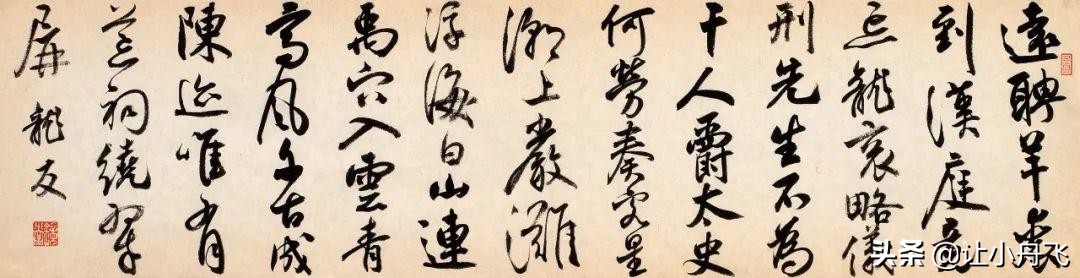 遠聘羊裘
到漢庭
忘龍袞略儀
刑先生不為
干人爵太史
何勞奏客星
潮上嚴灘
浮海白山連
禹穴入雲青
高風千古成
陳迹唯有
荒祠繞翠
屏 龍友
头条 @让小丹飞